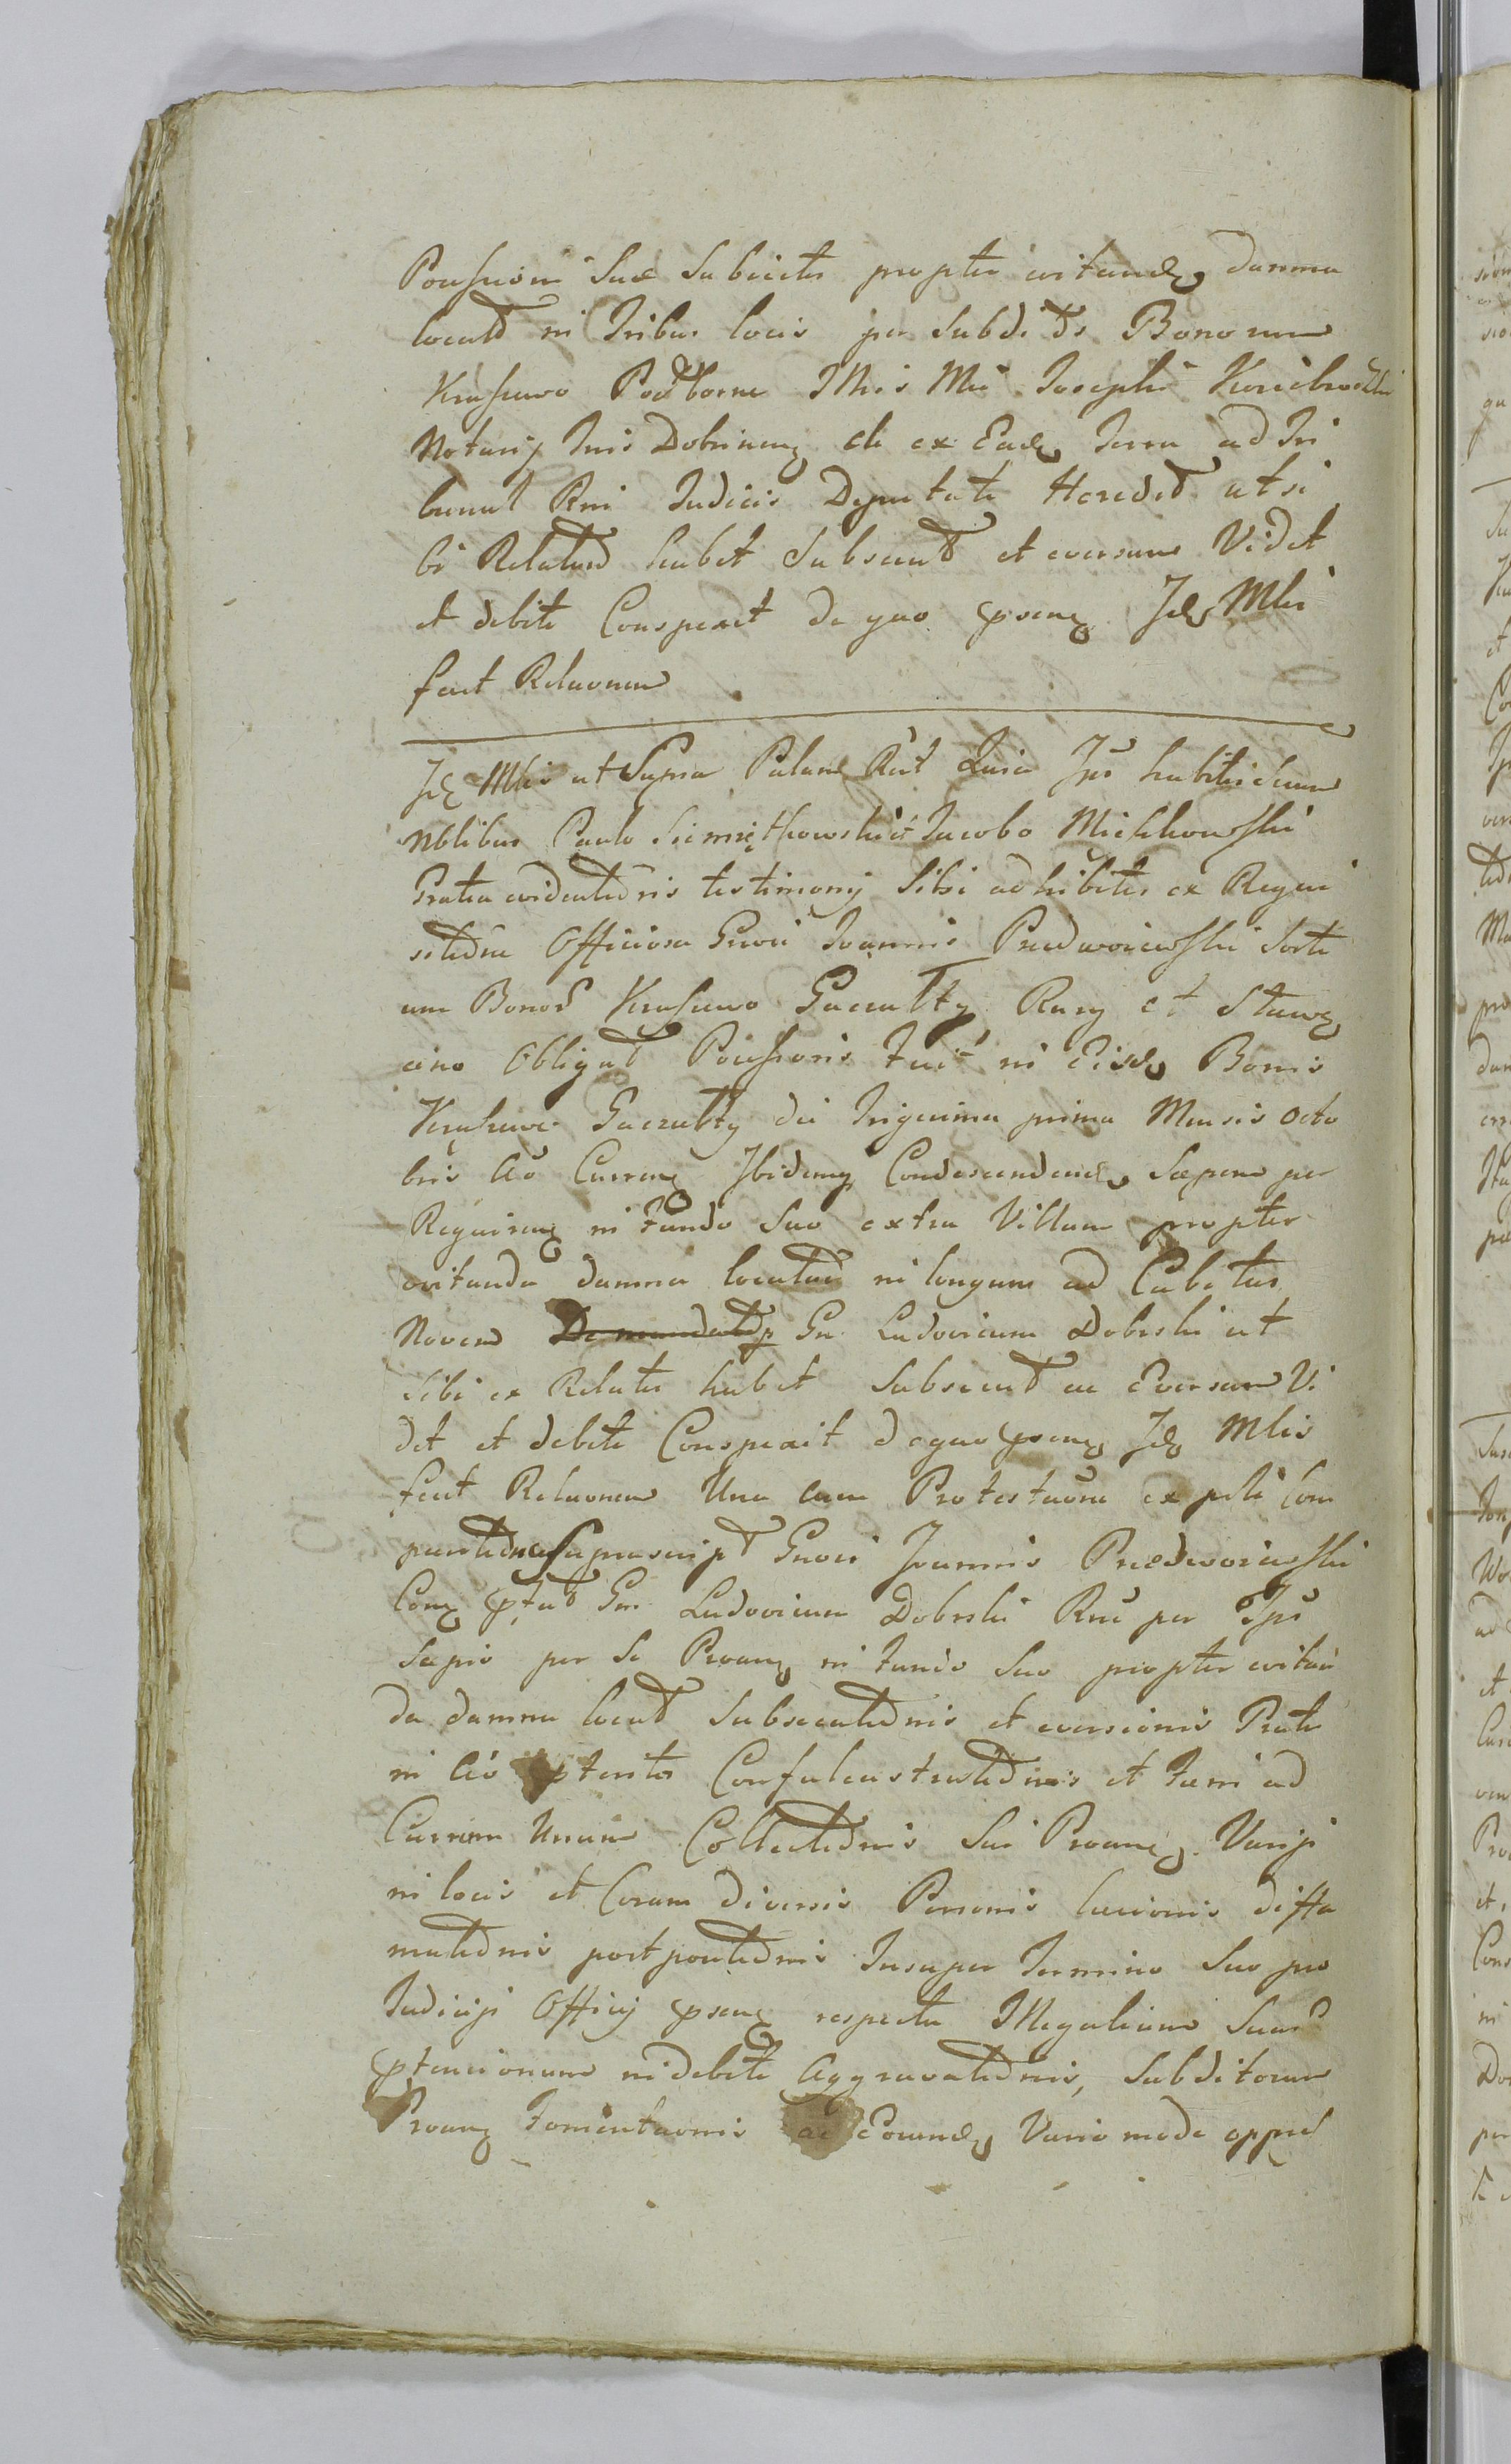 Possnioni Suae Subiectis propter evitand damna
locatd in Tribus locis per Subditos Bonorum
Krassewo Podborne Mci Josephi
Notarij Tris Dobrinen et ex Eadem Terra ad Tri
bunal Rni Judicis Deputati Haered ut si
bi Relatum habet Subsecut et eversum Vidit
et debite Conspexit de quo psens Id Mlis
fecit Relaonem
Id Mlis ut Supra Palam Rlt Quia Ips habitis secum
Nblibus Paulo Siemiętkowski et Jacobo Michkowski
Gratia evidentioris testimonij Sibi adhibitis ex Requi
sitione Officiosa Gnosi Joannis Przedwoiewski Sorti
um Bonor Krassewo Gaczułty Rury et
eino Obligat Possnoris fuit in Eisd Bonis
Krassewo Gaczułty die Trigesima prima Mensis Octo
bris Ao Curren Ibidemq Condescendend Saepem per
Requiren in Fundo Suo extra Villam propter
evitanda damna locatam in longum ad Cubitus
Novem De mandato p Gn Ludovicum Dobrski ut
sibi ex Relatis habet Subsecut ac Eversam Vi
dit et debite Conspexit de quo psens Id Mlis
fecit Relaonem Una cum Protestaone ex pte Com
parentis Suprascript Gnosi Joannis Przedwoiewski
Con ptat Gn Ludovicum Dobrski Rne per Ips
Sepis per Se Proan in fundo Suo propter evitan
da damna locat Subsecationis et eversionis Prati
in eo ptenta Confulcastrationis et faeni ad
Currum Unum Collectionis Sui Proan Varijs
in locis et Coram diversis Personis laesionis diffa
mationis postpontionis Insuper Termino Suo pro
Judicijs Officij psens respectu Illegalium Suar
ptensionum indebite Aggravationis, Subditorum
Proan fomentaonis ac Eorund Vario modo oppre